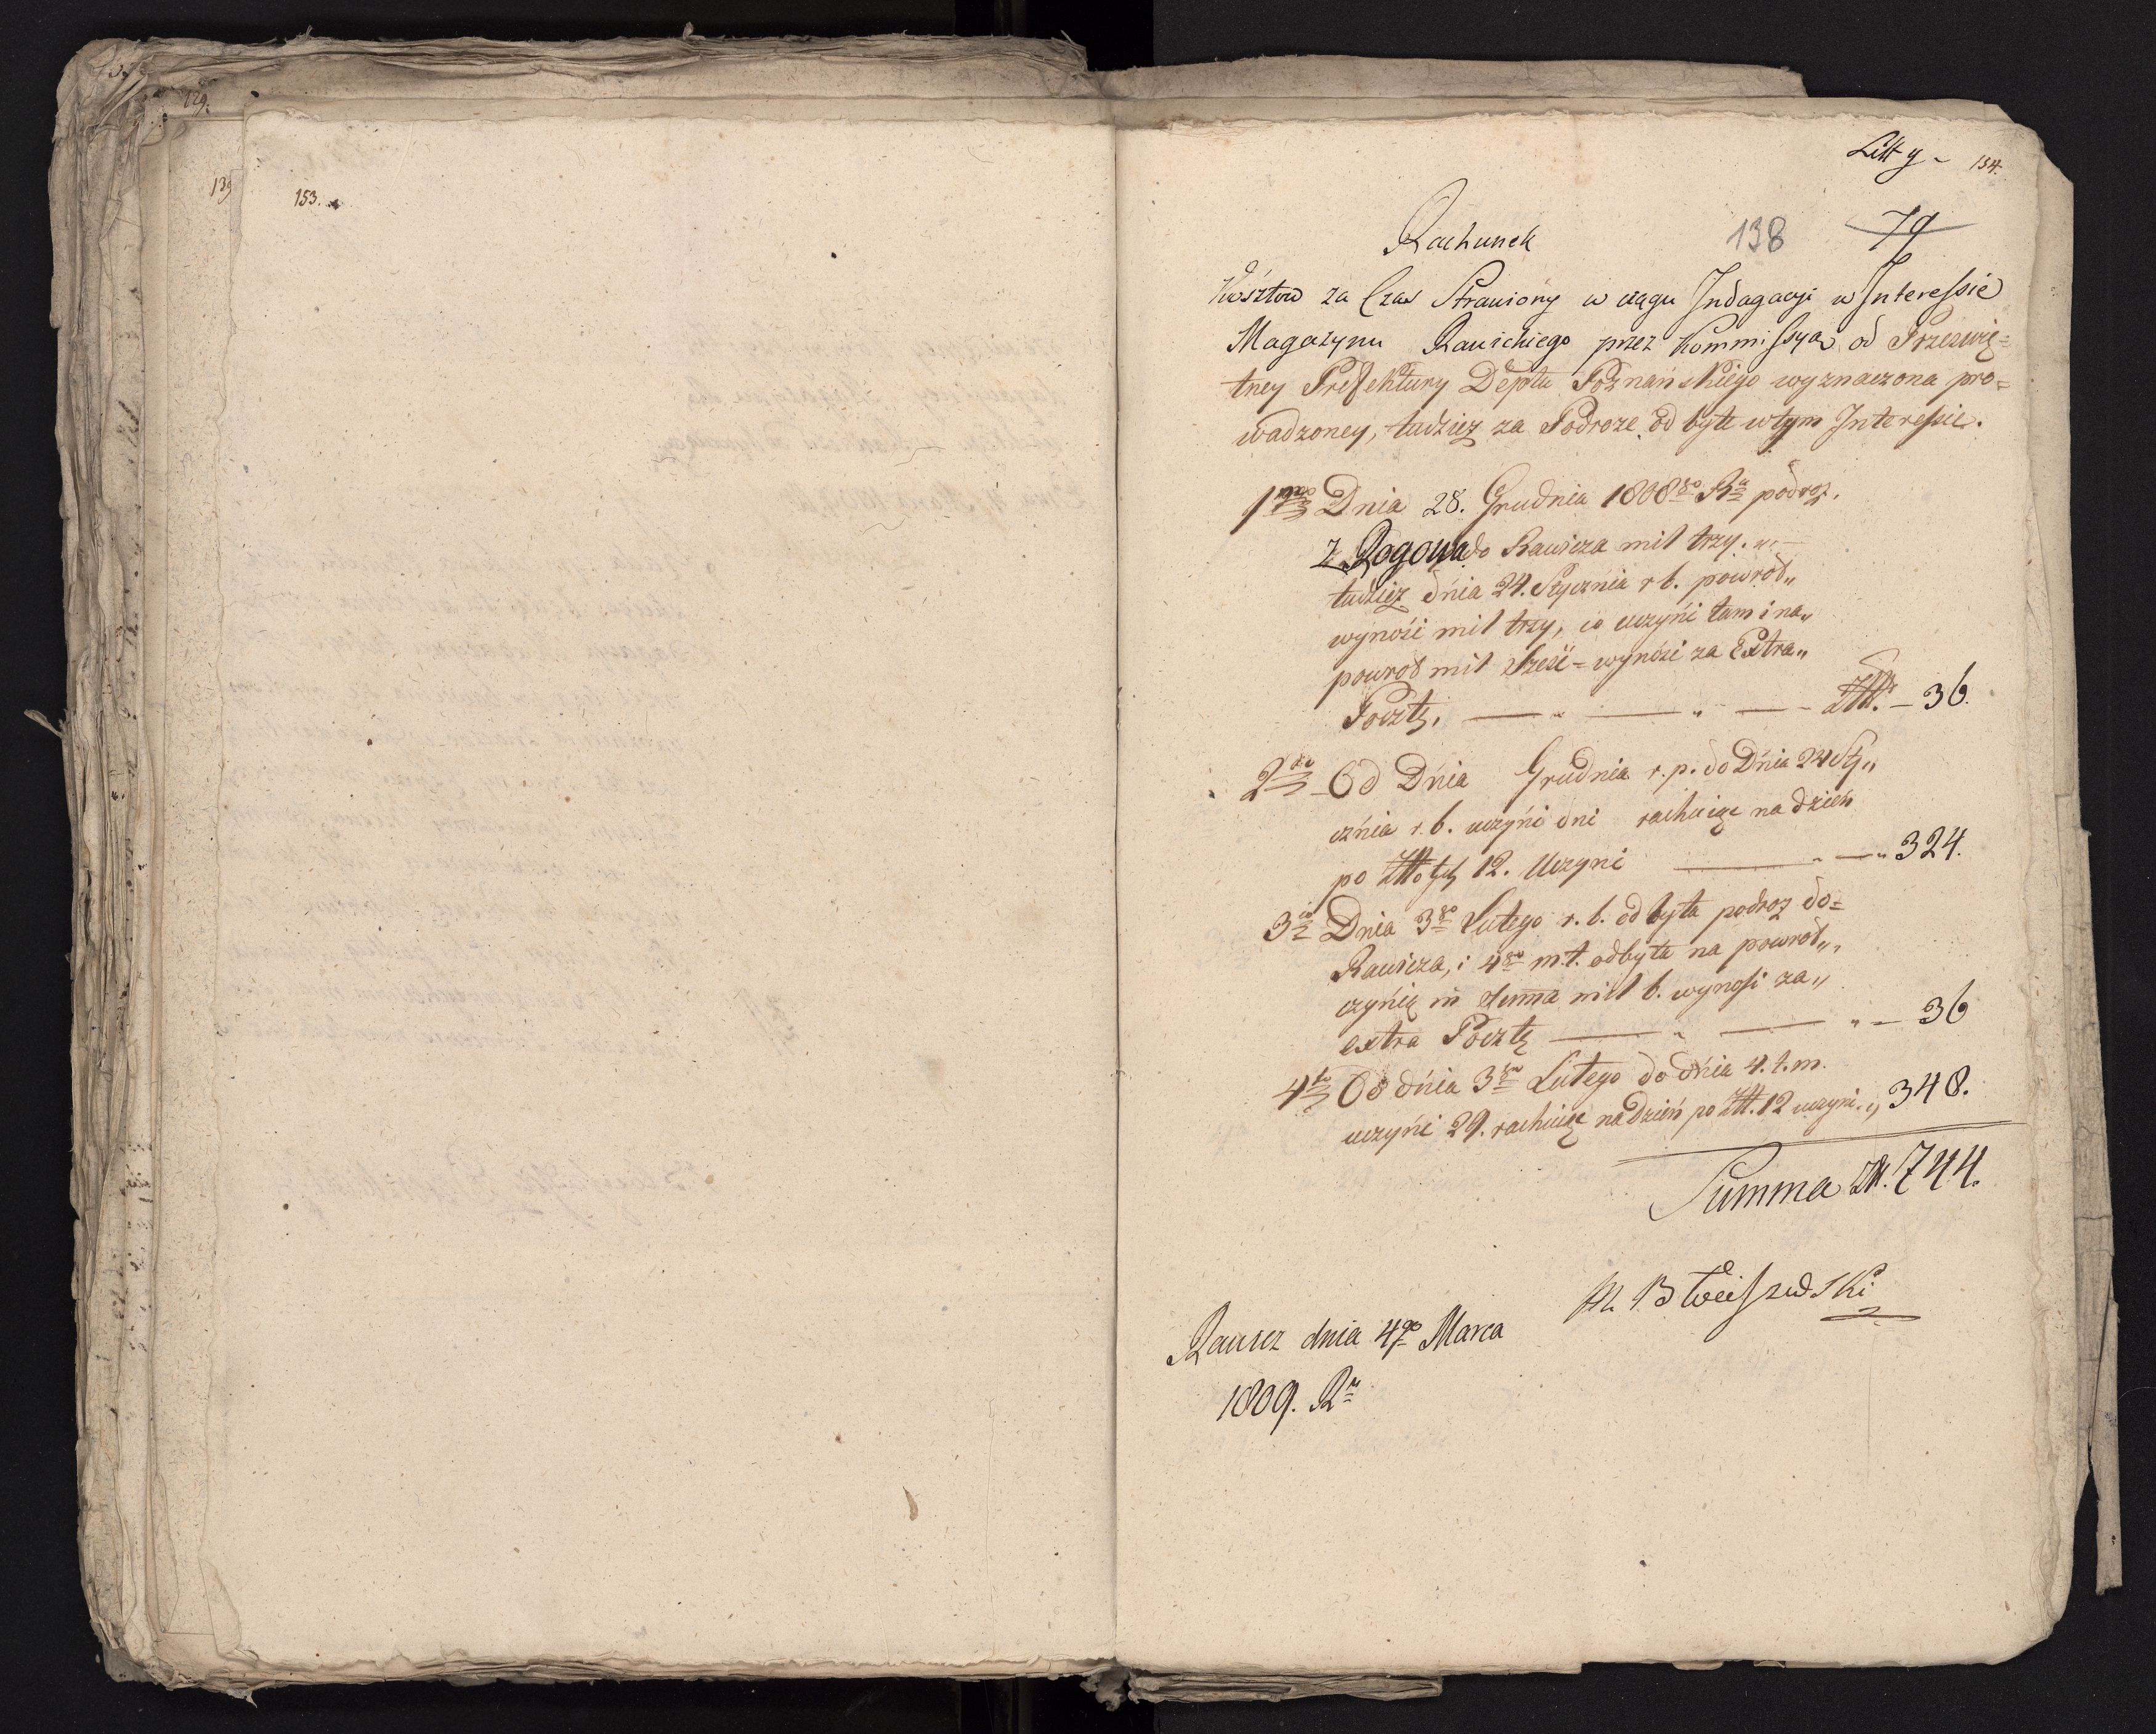 129.
139
153.
Litt y - 154.
138 79
Rachunek
Kosztow za Czas Strawiony w ciągu Indagacyi w Interessie
Magazynu Rawickiego przez Kommissyą od Prześwię=
tney Prefektury Deptu Poznańskiego wyznaczona pro=
wadzoney, tudzież za Podroze od byte w tym Interessie.
1mo Dnia 28. Grudnia 1808go Ru podroz.
Z Rogowa do Rawicza mil trzy.
tudzież dnia 24. Stycznia r b. powrot„
wynosi mil trzy, co uczyni tam i na„
powrot mil Sześć = wynosi za Extra„
Pocztę. — „ — „ — Złł. — 36.
2do Od Dnia Grudnia r. p. do Dnia 24 Sty„
cznia r. b. uczyni dni rachuiąc na dzień
po Złłotych 12. Uczyni — „ — „ 324.
3io Dnia 3go Lutego r. b. odbyta podroz do=
Rawicza, i 4go m. t. odbyta na powrot„,
czynią in Summa mil 6. wynosi za„
extra Pocztę — „ — „ — 36
4to Od dnia 3go Lutego do dnia 4. t. m.
uczyni 29. rachuiąc na Dzień po Złł. 12 uczyni. „ 348.
Summa Złł. 744.
Rawicz dnia 4go Marca
1809. Ru